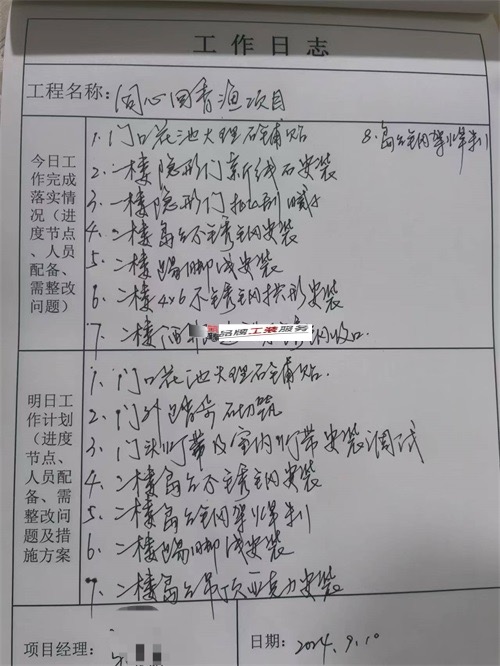 工作日志
工程名称: 同心回青渔项目
今日工作完成落实情况(进度节点、人员配备、需整改问题)
1. 门口花池大理石铺贴
8. 岛台钢架焊制
2. 二楼隐形门新线石安装
3. 二楼隐形门
4. 二楼岛台不锈钢安装
5. 二楼踢脚线安装
6. 二楼4×6不锈钢拱形安装
7. 二楼 收口.
品牌工装服务
明日工作计划(进度节点、人员配备、需整改问题及措施方案
1. 门口花池大理石铺贴.
2. 门外 石切筑
3. 门头灯带及室内灯带安装调试
4. 二楼岛台不锈钢安装
5. 二楼岛台钢架焊制
6. 二楼踢脚线安装
7. 二楼岛台吊顶亚克力安装
项目经理:
日期: 2024.9.10